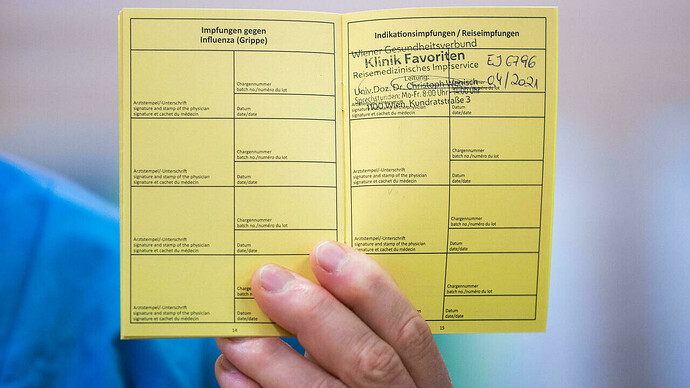 Impfungen gegen
Influenza (Grippe)
Chargennummer
batch no./numéro du lot
Arztstempel/-Unterschrift
signature and stamp of the physician
signature et cachet du médecin
Datum
date/date
Chargennummer
batch no./numéro du lot
Arztstempel/-Unterschrift
signature and stamp of the physician
signature et cachet du médecin
Datum
date/date
Chargennummer
batch no./numéro du lot
Arztstempel/-Unterschrift
signature and stamp of the physician
signature et cachet du médecin
Datum
date/date
Chargen
batch no.
Arztstempel/-Unterschrift
signature and stamp of the physician
signature et cachet du médecin
Datum
date/date
14
Indikationsimpfungen / Reiseimpfungen
Wiener Gesundheitsverbund
Klinik Favoriten
Reisemedizinisches Impfservice
Leitung:
Univ.Doz. Dr. Christoph Wenisch
Sprechstunden: Mo-Fr. 8:00 Uhr - 14:00 Uhr
1100 Wien, Kundratstraße 3
EJ6796
04/2021
Arztstempel/-Unterschrift
signature and stamp of the physician
signature et cachet du médecin
Datum
date/date
Chargennummer
batch no./numéro du lot
Arztstempel/-Unterschrift
signature and stamp of the physician
signature et cachet du médecin
Datum
date/date
Chargennummer
batch no./numéro du lot
Arztstempel/-Unterschrift
signature and stamp of the physician
signature et cachet du médecin
Datum
date/date
Chargennummer
batch no./numéro du lot
Datum
date/date
15